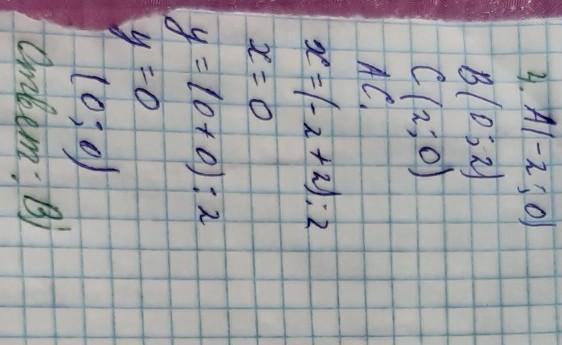 4. A(-2; 0)
B(0; 2)
C(2; 0)
AC.
x=(-2+2):2
x=0
y=(0+0):2
y=0
(0; 0)
Ответ: В)